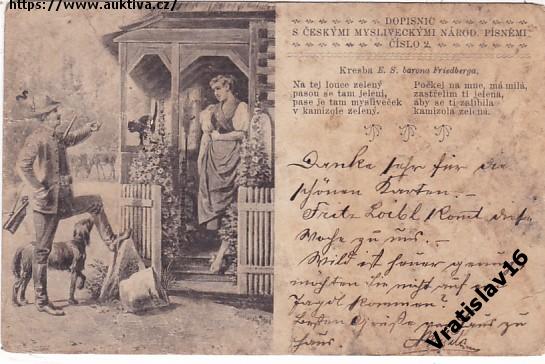 https://www.auktiva.cz/
DOPISNIC
S ČESKÝMI MYSLIVECKÝMI NÁROD. PÍSNĚMI
ČÍSLO 2.
Kresba E. S. barona Friedberga,
Na tej louce zelený
pasou se tam jeleni,
pase je tam mysliveček
v kamizole zelený.
Počkej na mne, má milá,
zastřelím ti jelena,
aby se ti zalíbila
kamizola zelená.
Danke sehr für die
schönen Karten. –
Fritz Loibl komt diese
Woche zu uns. –
Wild ist heuer genug
möchten Sie nicht auf
Jagd kommen?
Besten Grüße von Haus zu
Haus
Vratislav16